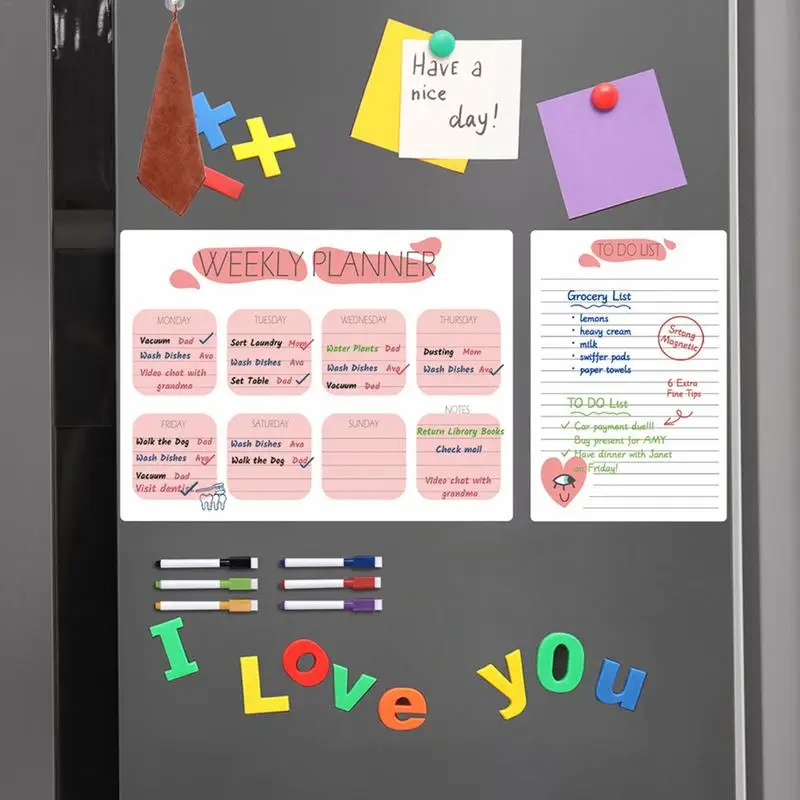 Have a
nice
day!
WEEKLY PLANNER
MONDAY
Vacuum Dad
Wash Dishes Ava
Video chat with
grandma
TUESDAY
Sort Laundry Mom
Wash Dishes Ava
Set Table Dad
WEDNESDAY
Water Plants Dad
Wash Dishes Ava
Vacuum Dad
THURSDAY
Dusting Mom
Wash Dishes Ava
FRIDAY
Walk the Dog Dad
Wash Dishes Ava
Vacuum Dad
Visit dentist
SATURDAY
Wash Dishes Ava
Walk the Dog Dad
SUNDAY
NOTES
Return Library Books
Check mail
Video chat with
grandma
TO DO LIST
Grocery List
• lemons
• heavy cream
• milk
• swiffer pads
• paper towels
Srtong
Magnetic
6 Extra
Fine Tips
TO DO List
Car payment due!!!
Buy present for AMY
Have dinner with Janet
on Friday!
I Love you